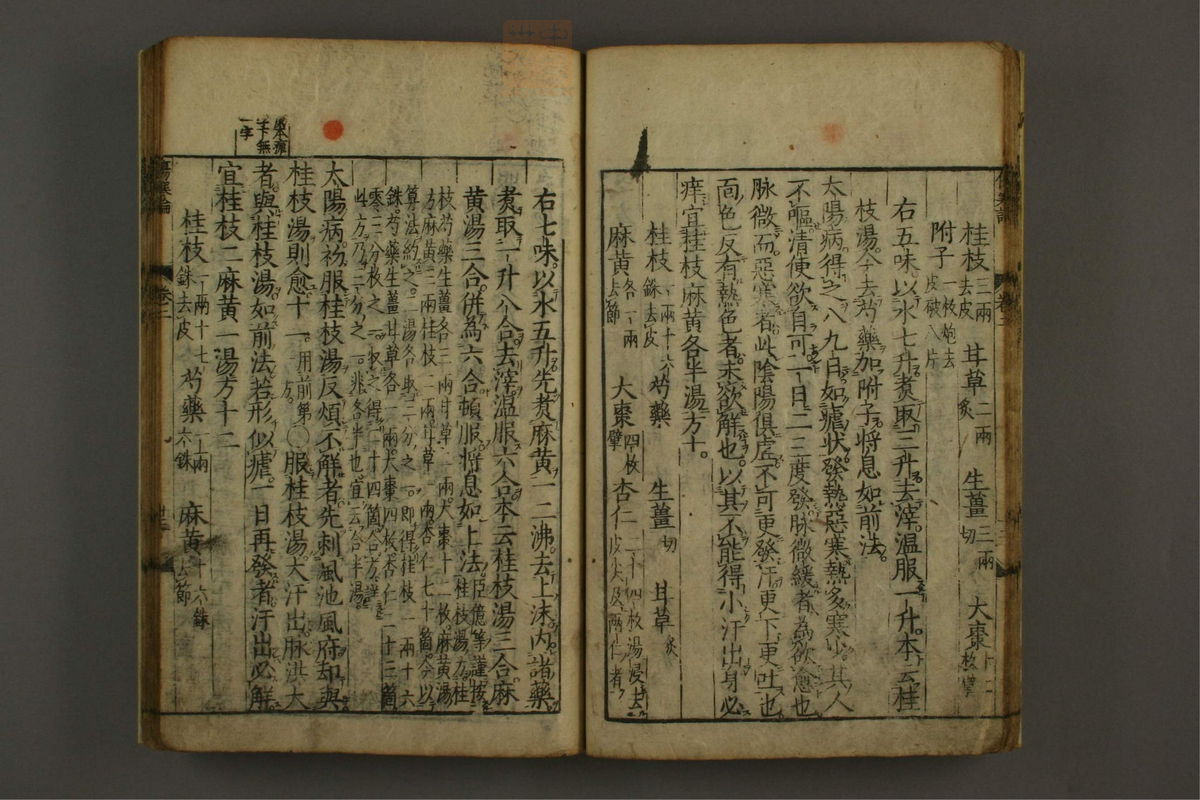 桂枝三兩去皮 甘草二兩炙 生薑三兩切 大棗十二枚擘
附子一枚炮去皮破八片
右五味以水七升煑取三升去滓溫服一升本云桂
枝湯今去芍藥加附子將息如前法
太陽病得之八九日如瘧狀發熱惡寒熱多寒少其人
不嘔清便欲自可一日二三度發脉微緩者為欲愈也
脉微而惡寒者此陰陽俱虛不可更發汗更下更吐也
面色反有熱色者未欲解也以其不能得小汗出身必
痒宜桂枝麻黄各半湯方十
桂枝一兩十六銖去皮 芍藥 生薑切 甘草炙
麻黄各一兩去節 大棗四枚擘 杏仁二十四枚湯浸去皮尖及兩仁者
傷寒論 卷三
右七味以水五升先煑麻黄一二沸去上沫内諸藥
煑取一升八合去滓溫服六合本云桂枝湯三合麻
黄湯三合併為六合頓服將息如上法臣億等謹按桂枝湯方桂
枝芍藥生薑各三兩甘草二兩大棗十二枚麻黄湯
方麻黄三兩桂枝二兩甘草一兩杏仁七十箇今以
算法約之二湯各取三分之一即得桂枝一兩十六
銖芍藥生薑甘草各一兩大棗四枚杏仁二十三箇
零三分枚之一収之得二十四箇合方詳
此方乃三分之一非各半也宜云合半湯
太陽病初服桂枝湯反煩不解者先刺風池風府却與
桂枝湯則愈十一用前第○方
服桂枝湯大汗出脉洪大
者與桂枝湯如前法若形似瘧一日再發者汗出必解
宜桂枝二麻黄一湯方十二
桂枝一兩十七銖去皮 芍藥一兩六銖 麻黄十六銖去節
傷寒論 卷三